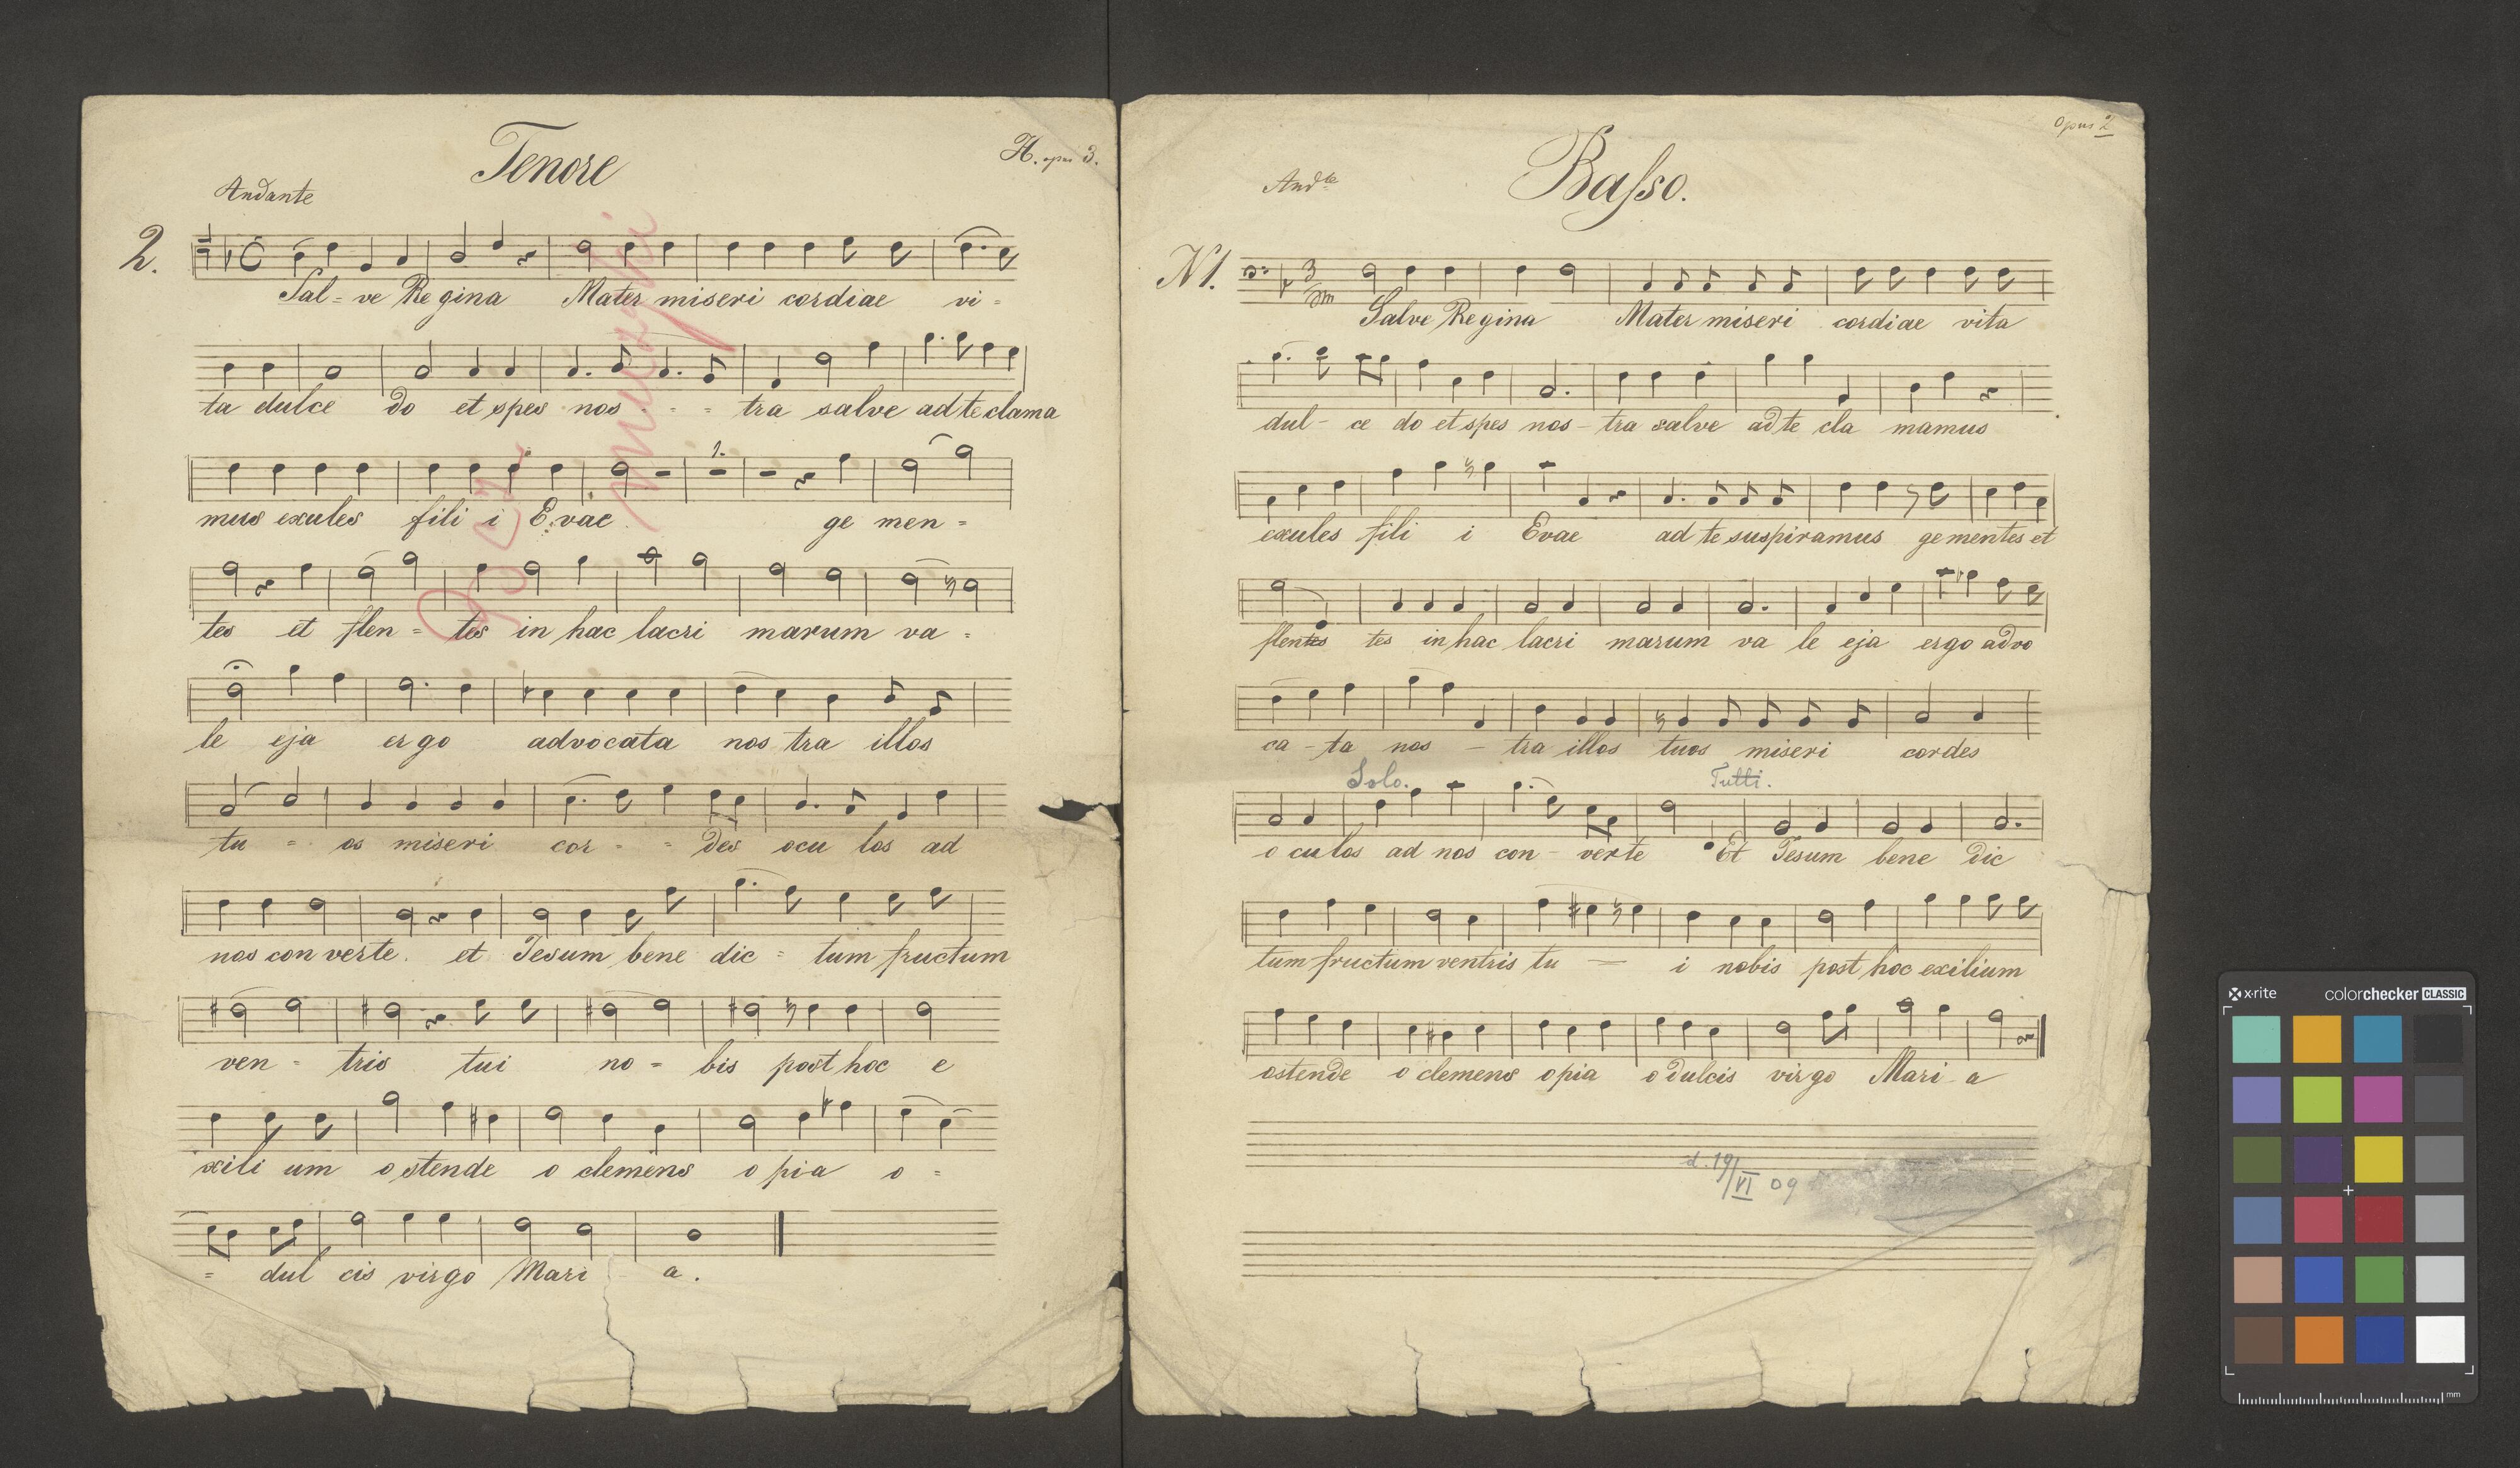 Tenore
H. opus 3.
Andante
2.
Sal = ve Regina Mater miseri cordiae vi =
ta dulce do et spes nos - - = tra salve ad te clama
mus exules fili i Evae ge men =
tes et flen = tes in hac lacri marum va =
le eja ergo advocata nos tra illos
tu = os miseri cor = = des ocu los ad
nos con verte. et Jesum bene dic = tum fructum
ven = tris tui no = bis post hoc e
xili um ostende o clemens o pia o =
= dul cis virgo Mari a.
opus 2
Basso.
Andte
N1.
3
Salve Regina Mater miseri cordiae vita
dul - ce do et spes nos - tra salve ad te cla mamus
exules fili i Evae ad te suspiramus gementes et
flentes tes in hac lacri marum va le eja ergo advo
ca - ta nos - tra illos tuos miseri cordes
Solo. Tutti.
o culos ad nos con - verte Et Jesum bene dic
tum fructum ventris tu — i nobis post hoc exilium
ostende o clemens o pia o dulcis virgo Mari - a
d. 19/VI 09
x-rite colorchecker CLASSIC
mm